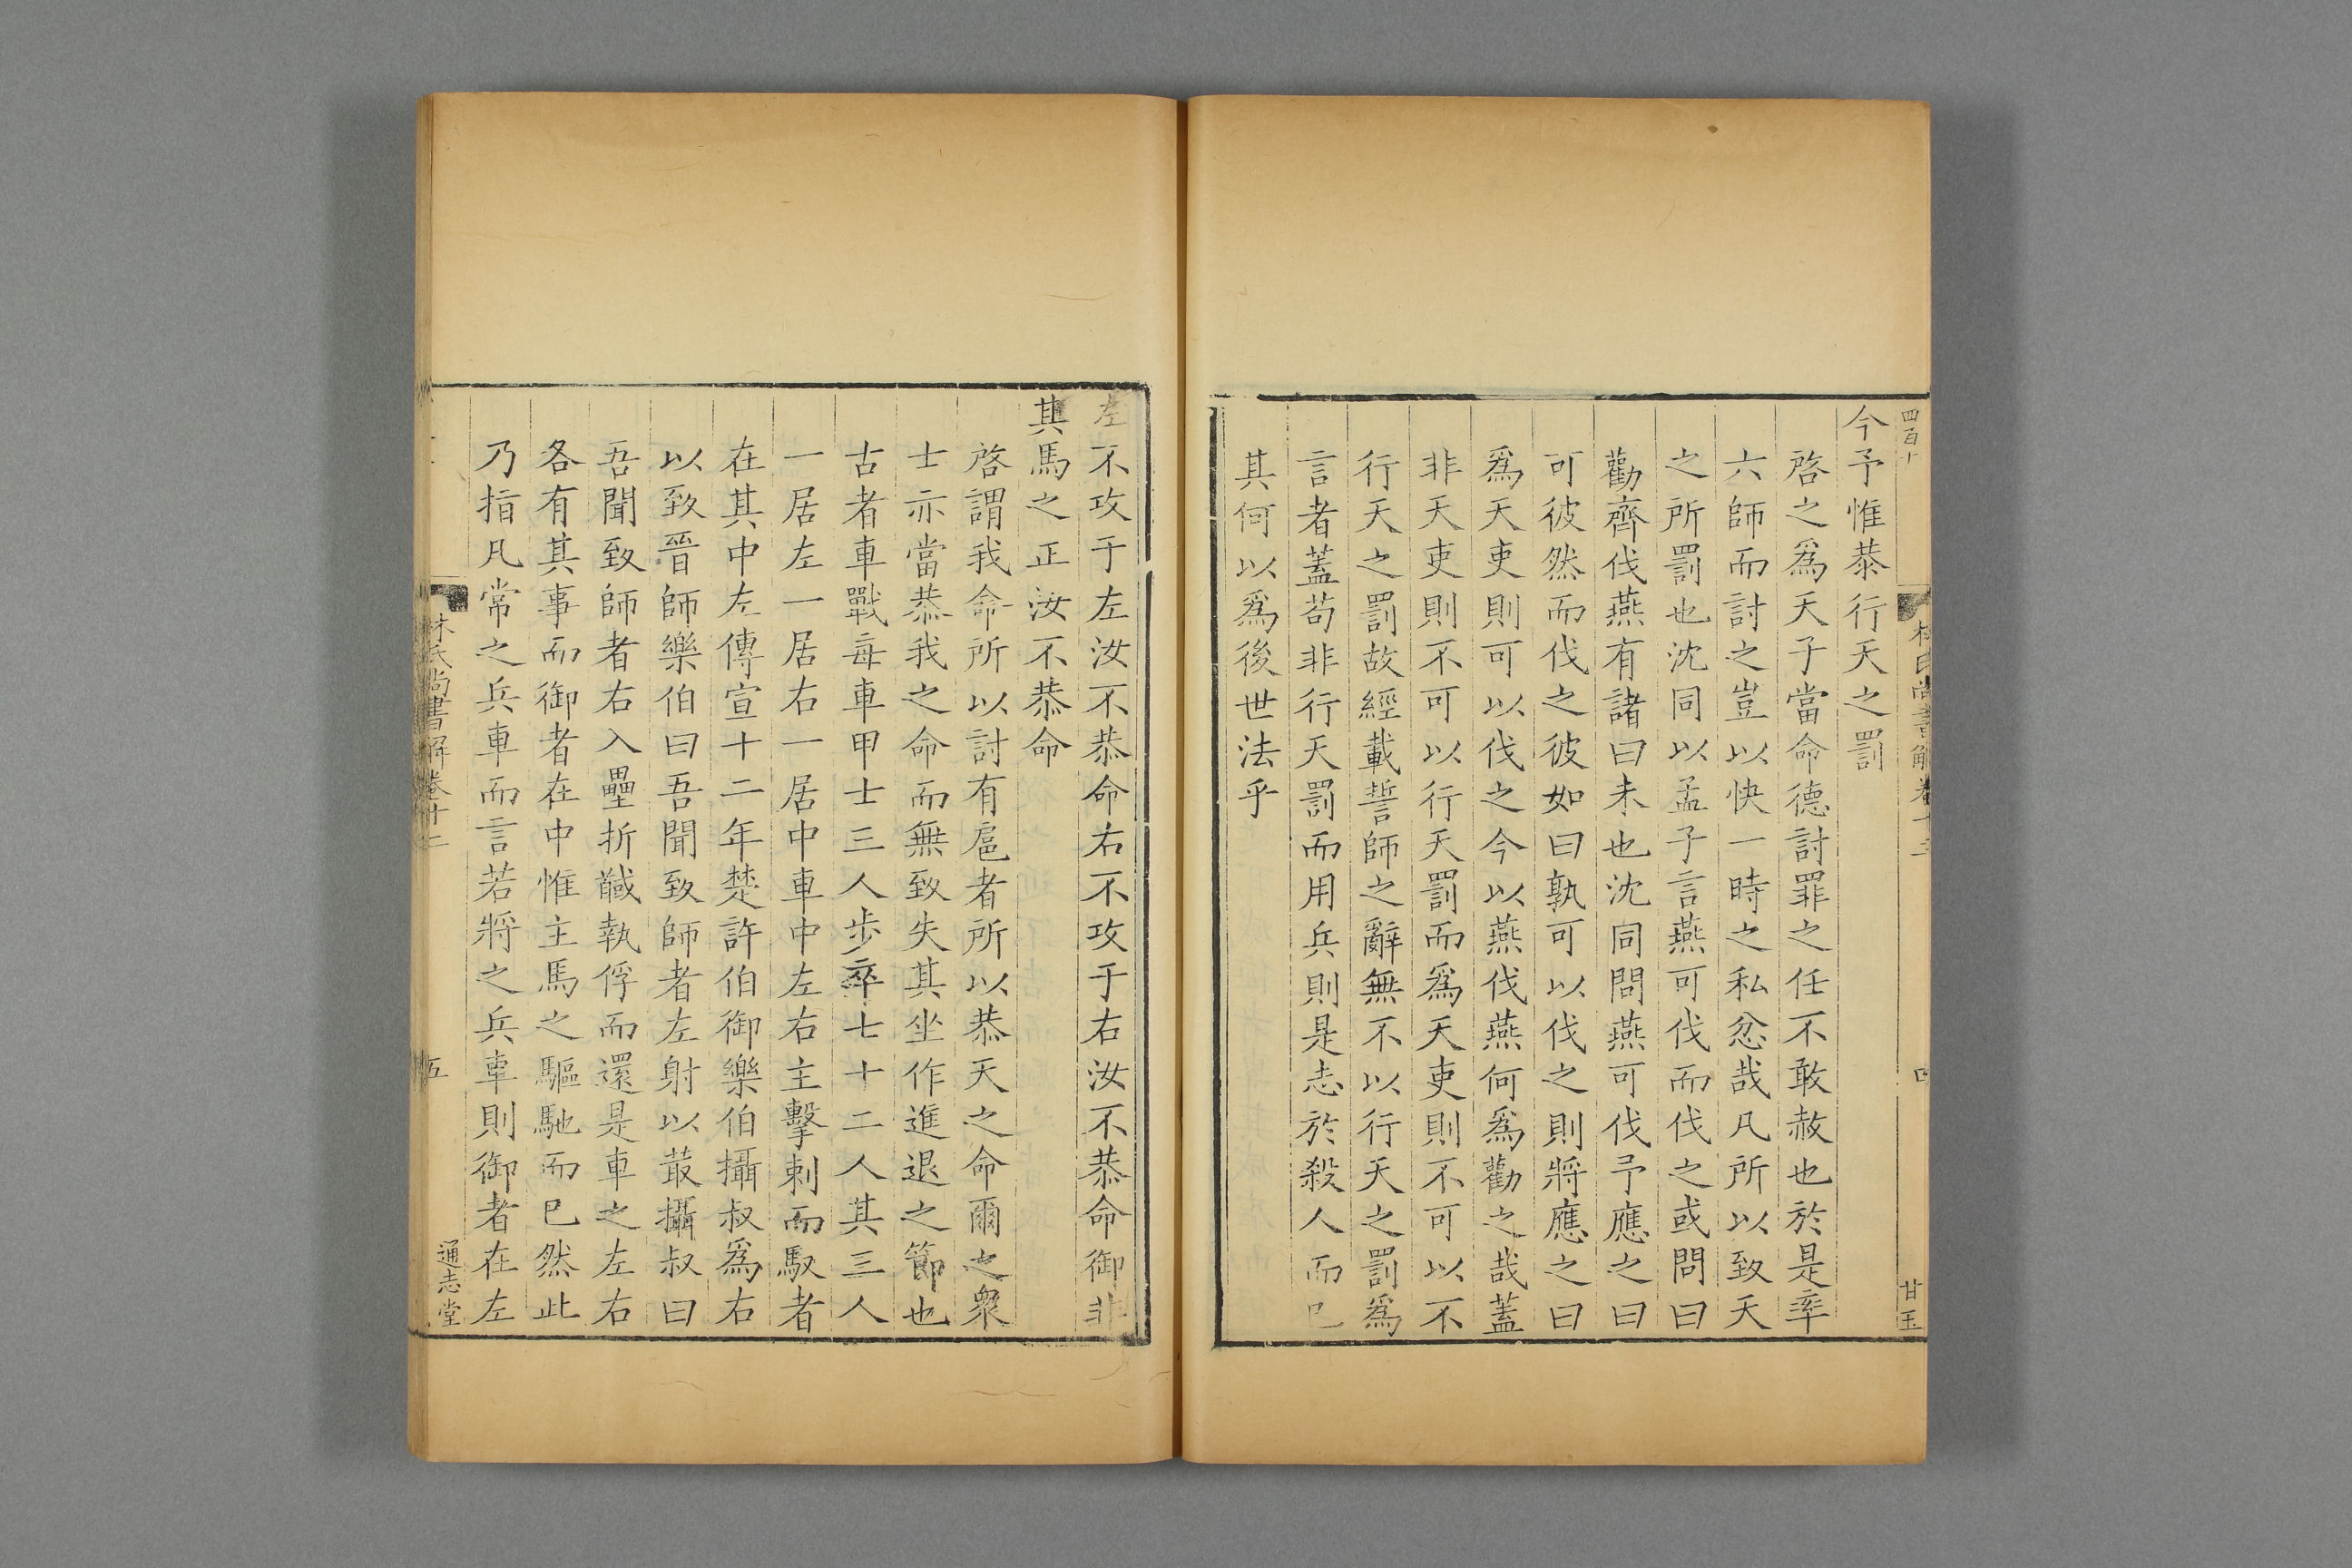 四百十
林氏尚書解卷十二
四
甘玉
今予惟恭行天之罰
啓之爲天子當命德討罪之任不敢赦也於是率
六師而討之豈以快一時之私忿哉凡所以致天
之所罰也沈同以孟子言燕可伐而伐之或問曰
勸齊伐燕有諸曰未也沈同問燕可伐予應之曰
可彼然而伐之彼如曰孰可以伐之則將應之曰
爲天吏則可以伐之今以燕伐燕何爲勸之哉蓋
非天吏則不可以行天罰而爲天吏則不可以不
行天之罰故經載誓師之辭無不以行天之罰爲
言者蓋苟非行天罰而用兵則是志於殺人而已
其何以爲後世法乎
左不攻于左汝不恭命右不攻于右汝不恭命御非
其馬之正汝不恭命
啓謂我命所以討有扈者所以恭天之命爾之衆
士亦當恭我之命而無致失其坐作進退之節也
古者車戰每車甲士三人步卒七十二人其三人
一居左一居右一居中車中左右主擊刺而馭者
在其中左傳宣十二年楚許伯御樂伯攝叔爲右
以致晉師樂伯曰吾聞致師者左射以菆攝叔曰
吾聞致師者右入壘折馘執俘而還是車之左右
各有其事而御者在中惟主馬之驅馳而已然此
乃指凡常之兵車而言若將之兵車則御者在左
林氏尚書解卷十二
五
通志堂